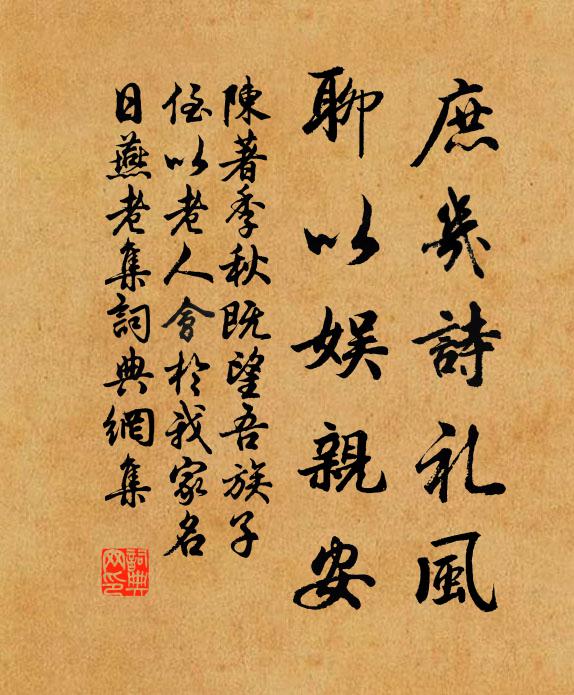 庶幾詩礼風
聊以娱親安
陳著季秋既望吾族子
侄以老人會於我家名
日燕老集詞典網集
詞典網印